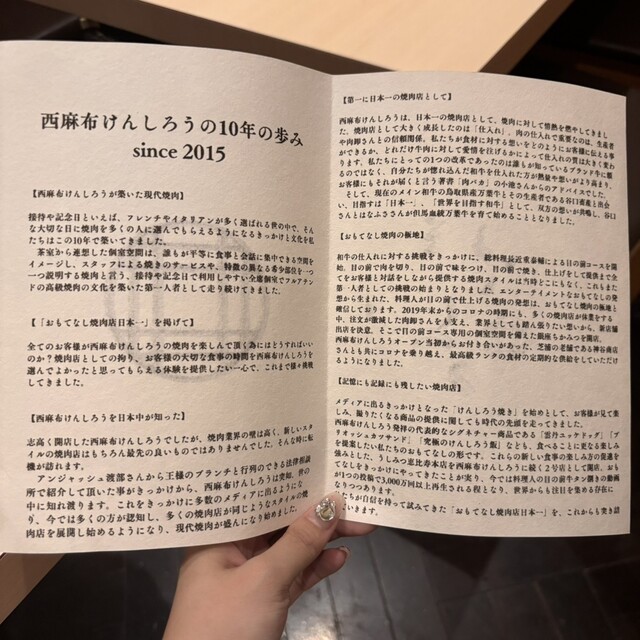 西麻布けんしろうの10年の歩み
since 2015
【西麻布けんしろうが築いた現代焼肉】
接待や記念日といえば、フレンチやイタリアンが多く選ばれる世の中で、そん
な大切な日に焼肉を多くの人に選んでもらえるようになるきっかけと文化を私
たちはこの10年で築いてきました。
茶室から連想した個室空間は、誰もが平等に食事と会話に集中できる空間を
イメージし、スタッフによる焼きのサービスや、特徴の異なる希少部位を一つ
一つ説明する焼肉と言う、接待や記念日で利用しやすい全席個室でフルアテンド
の高級焼肉の文化を築いた第一人者として走り続けてきました。
【「おもてなし焼肉店日本一」を掲げて】
全てのお客様が西麻布けんしろうの焼肉を楽しんで頂く為にはどうすればいい
のか？焼肉店としての拘り、お客様の大切な食事の時間を西麻布けんしろうを
選んでよかったと思ってもらえる体験を提供したい一心で、これまで様々挑戦
してきました。
【西麻布けんしろうを日本中が知った】
志高く開店した西麻布けんしろうでしたが、焼肉業界の壁は高く、新しいスタ
イルの焼肉店はもちろん最先の良いものではありませんでした。そんな時に転
機が訪れます。
アンジャッシュ渡部さんから王様のブランチと行列のできる法律相談
所で紹介して頂いた事がきっかけから、西麻布けんしろうは突如、世の
中に知れ渡ります。これをきっかけに多数のメディアに出るようにな
り、今では多くの方が認知し、多くの焼肉店が同じようなスタイルの焼
肉店を展開し始めるようになり、現代焼肉が盛んになり始めました。
【第一に日本一の焼肉店として】
西麻布けんしろうは、日本一の焼肉店として、焼肉に対して情熱を燃やしてきまし
た。焼肉店として大きく成長したのは「仕入れ」。肉の仕入れで重要なのは、生産者
や肉卸さんとの信頼関係。私たちが食材に対する想いをどのようにお客様に伝える事
ができるか、どれだけ牛肉に対して愛情を注げるかによって仕入れの質は大きく変わ
ります。私たちにとっての1つの改革であったのは誰もが知っているブランド牛に頼
るのではなく、自分たちが惚れ込んだ和牛を仕入れた方が熱量や想いがより高まり、
お客様にもそれが届くと言う著書「肉バカ」の小池さんからのアドバイスでした。
そして、現在のメイン和牛の鳥取県産万葉牛とその生産者である谷口直産と出会
い、目指すは「日本一」、「世界を目指す和牛」として、双方の想いが共鳴し、谷口
さんとはなふささんが但馬血統万葉牛を育て始めることとなりました。
【おもてなし焼肉の極地】
和牛の仕入れに対する挑戦をきっかけに、総料理長近重泰輔による目の前コースを開
始。目の前で肉を切り、目の前で味をつけ、目の前で焼き、仕上げをして提供まで全
てをお客様と対話をしながら提供する焼肉スタイルは当時どこにもなく、これもまた
第一人者としての挑戦の始まりとなりました。エンターテイメントなおもてなしの発
想から生まれた、料理人が目の前で仕上げる焼肉の発想は、おもてなし焼肉の極地と
確信しております。2019年末からのコロナの時期にも、多くの焼肉店が休業をする
中、注文が激減した肉卸さんをも支え、業界としても踏ん張りたい想いから、新店舗
出店を決意。そこで目の前コース専用の個室空間を備えた銀座ちかみつを開店。
西麻布けんしろうオープン当初からお付き合いがあった、芝浦の老舗である神谷商店
さんとも共にコロナを乗り越え、最高級ランクの食材の定期的な供給をしていただけ
るようになりました。
【記憶にも記録にも残したい焼肉店】
メディアに出るきっかけとなった「けんしろう焼き」を始めとして、お客様が見て楽
しみ、撮りたくなる商品の提供に関しても時代の先頭を走ってきました。
西麻布けんしろう発祥の代表的なシグネチャー商品である「雲丹ユッケドッグ」「ブ
リオッシュカツサンド」「究極のけんしろう飯」なども、食べることに更なる楽しみ
を提案したい私たちのおもてなしの形です。これらの新しい食事の楽しみ方の変遷を
強みとした、うしみつ恵比寿本店を西麻布けんしろうに続く2号店として開店。おも
てなしをきっかけにやってきたことが実り、今では料理人の目の前牛タン捌きの動画
が1つの投稿で3,000万回以上再生される程となり、世界からも注目を集める存在に
なりつつあります。
たちが自信を持って試みてきた「おもてなし焼肉店日本一」を、これからも突き詰
いきます。